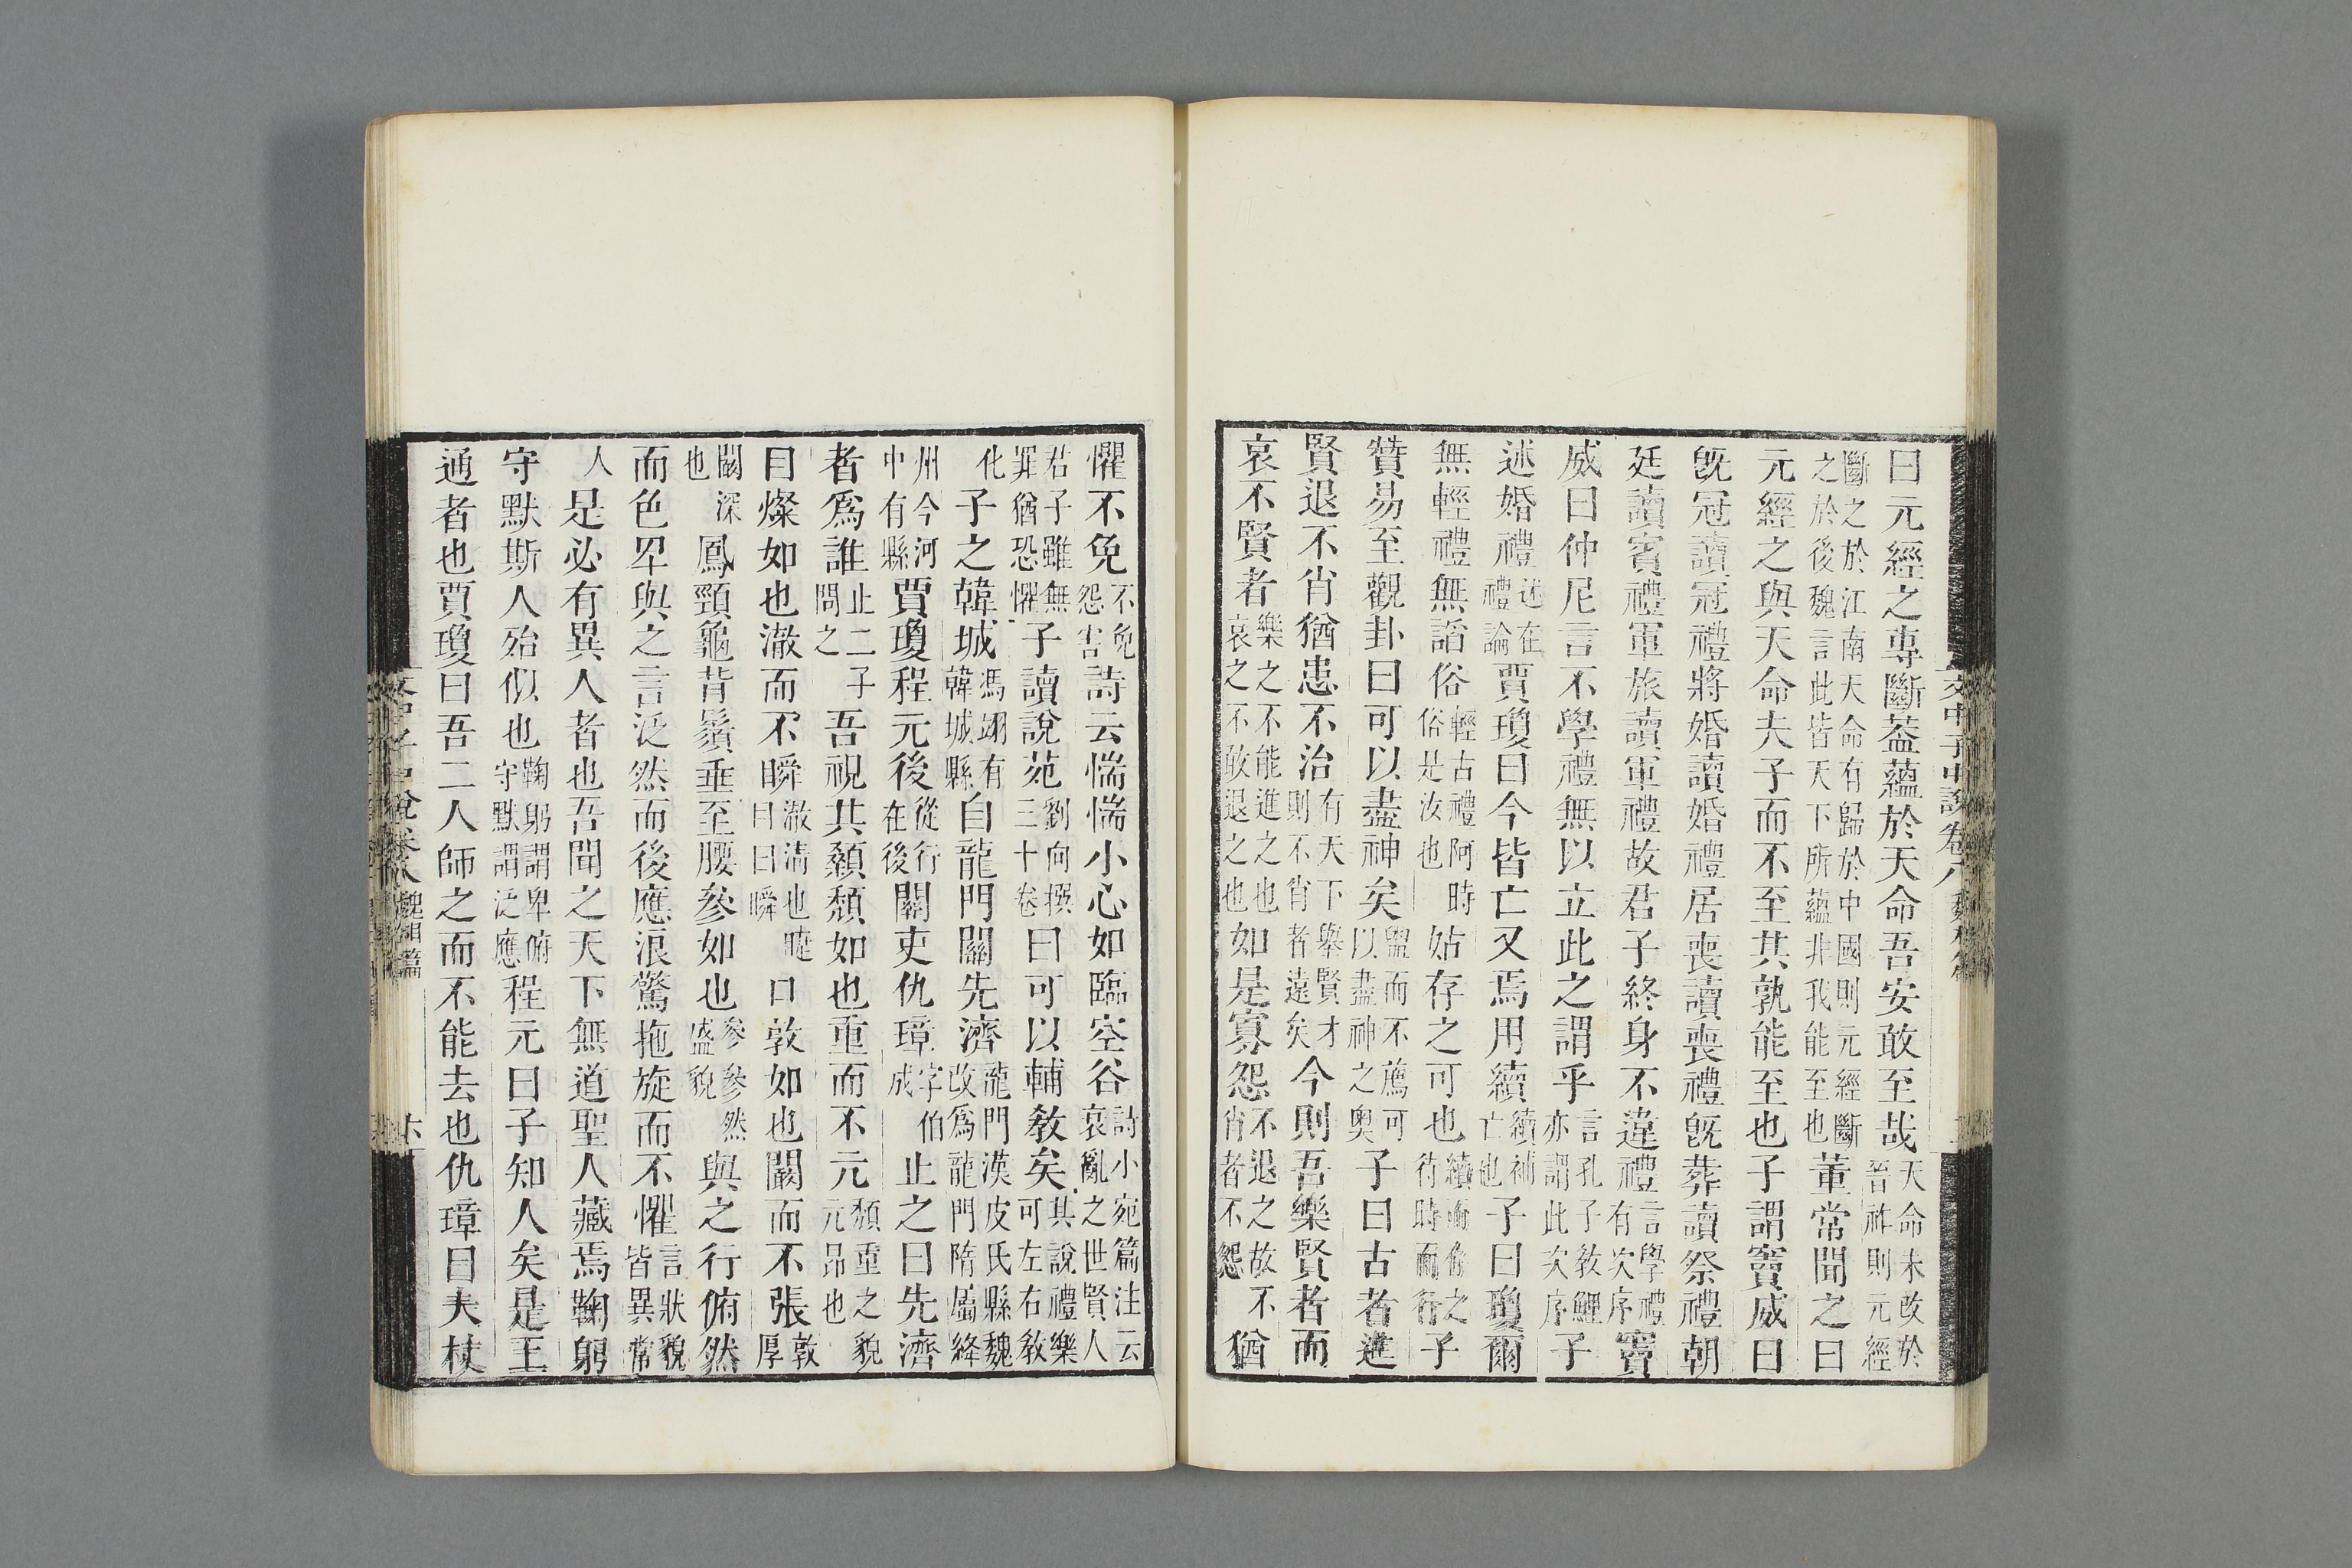 文中子中說卷八 魏相篇
曰元經之專斷葢蘊於天命吾安敢至哉天命未改於晉祚則元經
斷之於江南天命有歸於中國則元經斷之於後魏言此皆天下所蘊非我能至也董常聞之曰
元經之與天命夫子而不至其孰能至也子謂竇威曰
旣冠讀冠禮將婚讀婚禮居喪讀喪禮旣葬讀祭禮朝
廷讀賓禮軍旅讀軍禮故君子終身不違禮言學禮有次序竇
威曰仲尼言不學禮無以立此之謂乎言孔子敎鯉亦謂此次序子
述婚禮述在禮論賈瓊曰今皆亡又焉用續續補亡也子曰瓊爾
無輕禮無諂俗輕古禮阿時俗是汝也姑存之可也續而脩之待時而行子
贊易至觀卦曰可以盡神矣盥而不薦可以盡神之奧子曰古者進
賢退不肖猶患不治有天下舉賢才則不肖者遠矣今則吾樂賢者而
哀不賢者樂之不能進之也哀之不敢退之也如是寡怨不退之故不肖者不怨猶
懼不免不免怨害詩云惴惴小心如臨空谷詩小宛篇注云哀亂之世賢人
君子雖無罪猶恐懼子讀說苑劉向撰三十卷曰可以輔敎矣其說禮樂可左右敎
化子之韓城馮翊有韓城縣自龍門關先濟龍門漢皮氏縣魏改爲龍門隋屬絳
州今河中有縣賈瓊程元後從行在後關吏仇璋字伯成止之曰先濟
者爲誰止二子問之吾視其顙頽如也重而不元頽重之貌元昂也
目燦如也澈而不瞬澈清也睫目曰瞬口敦如也闕而不張敦厚
闕深也鳳頸龜背鬚垂至腰參如也參參然盛貌與之行俯然
而色卑與之言泛然而後應浪驚拖旋而不懼言狀貌皆異常
人是必有異人者也吾聞之天下無道聖人藏焉鞠躬
守默斯人殆似也鞠躬謂卑俯守默謂泛應程元曰子知人矣是王
通者也賈瓊曰吾二人師之而不能去也仇璋曰夫杖
魏相篇